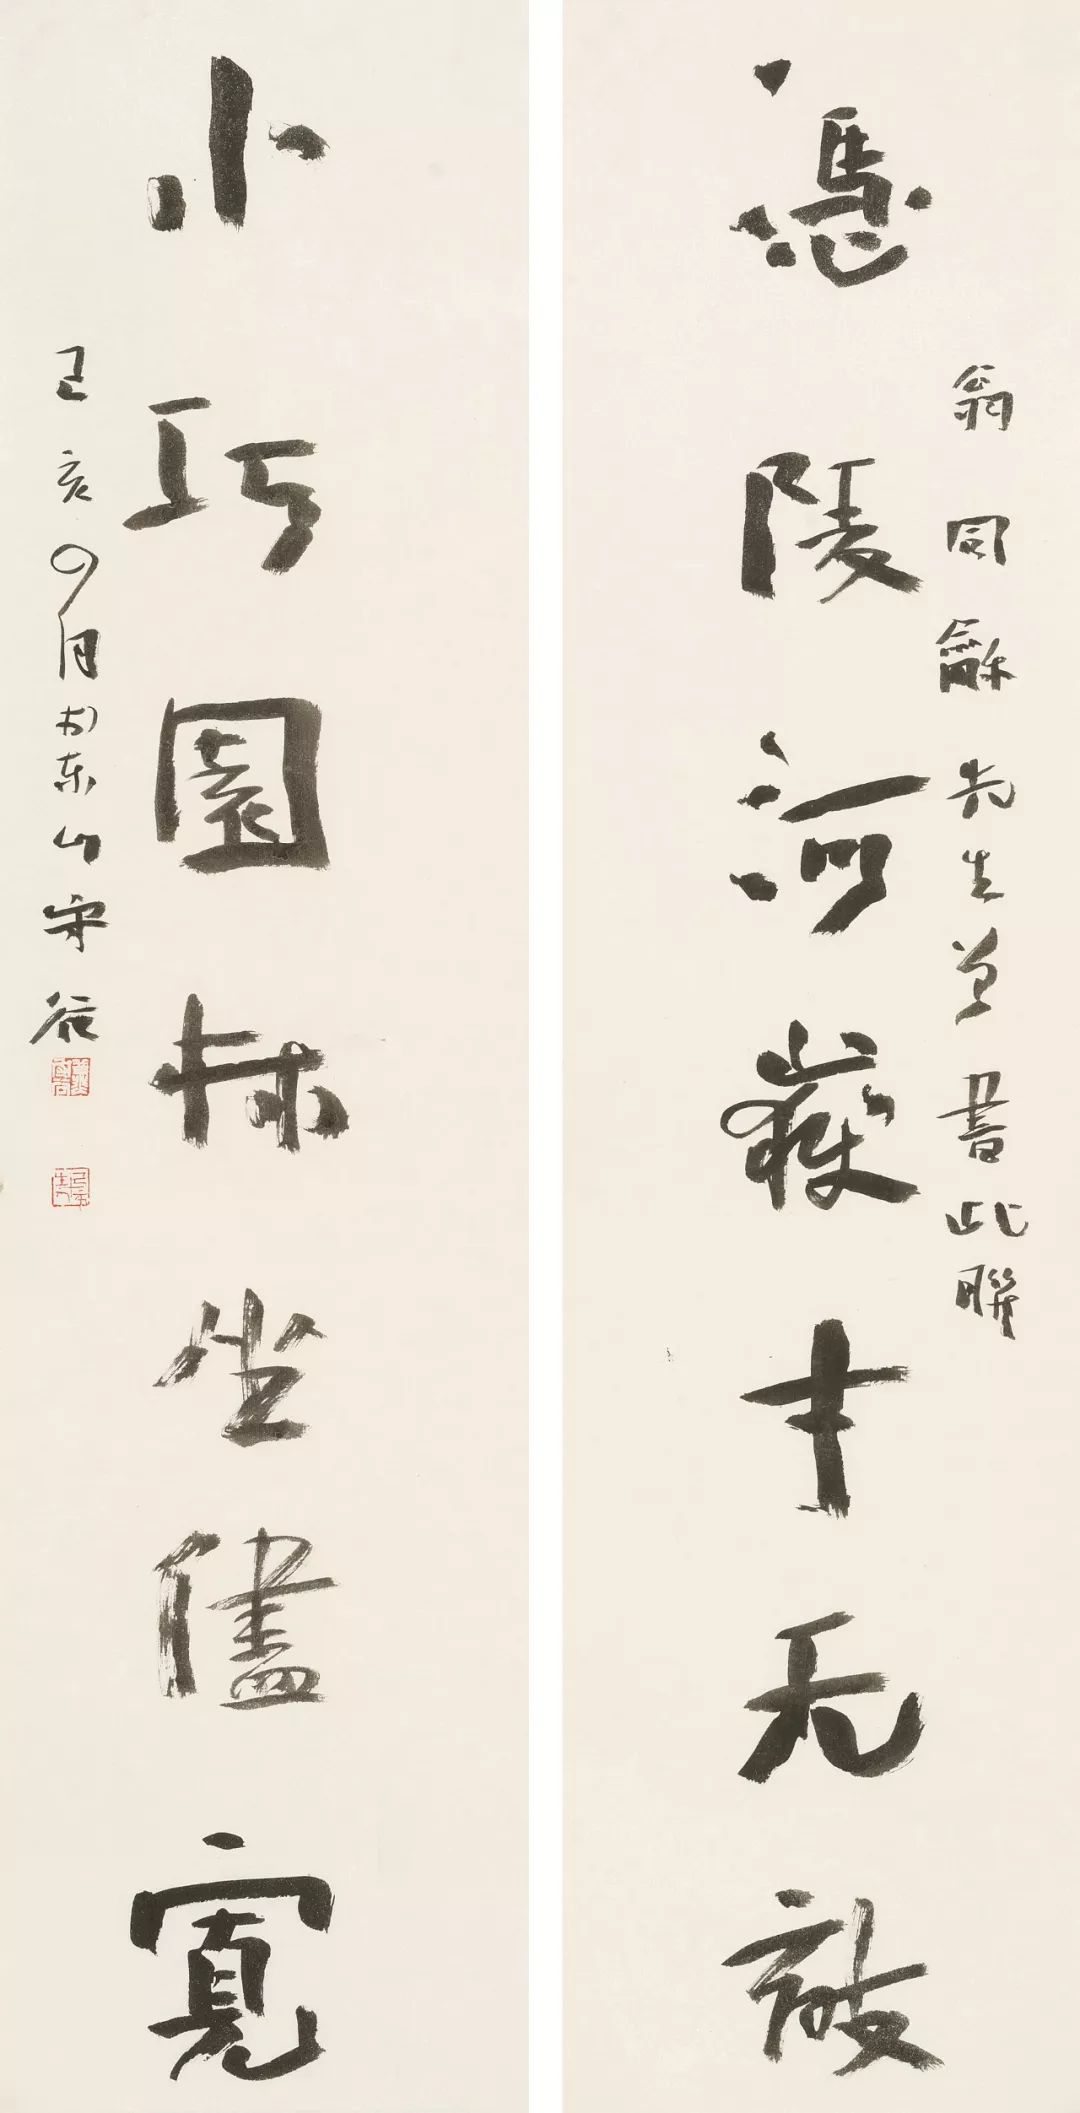 憑陵河嶽才无敵
翁同龢先生曾書此聯
小巧園林坐儘寬
己亥四月於东山